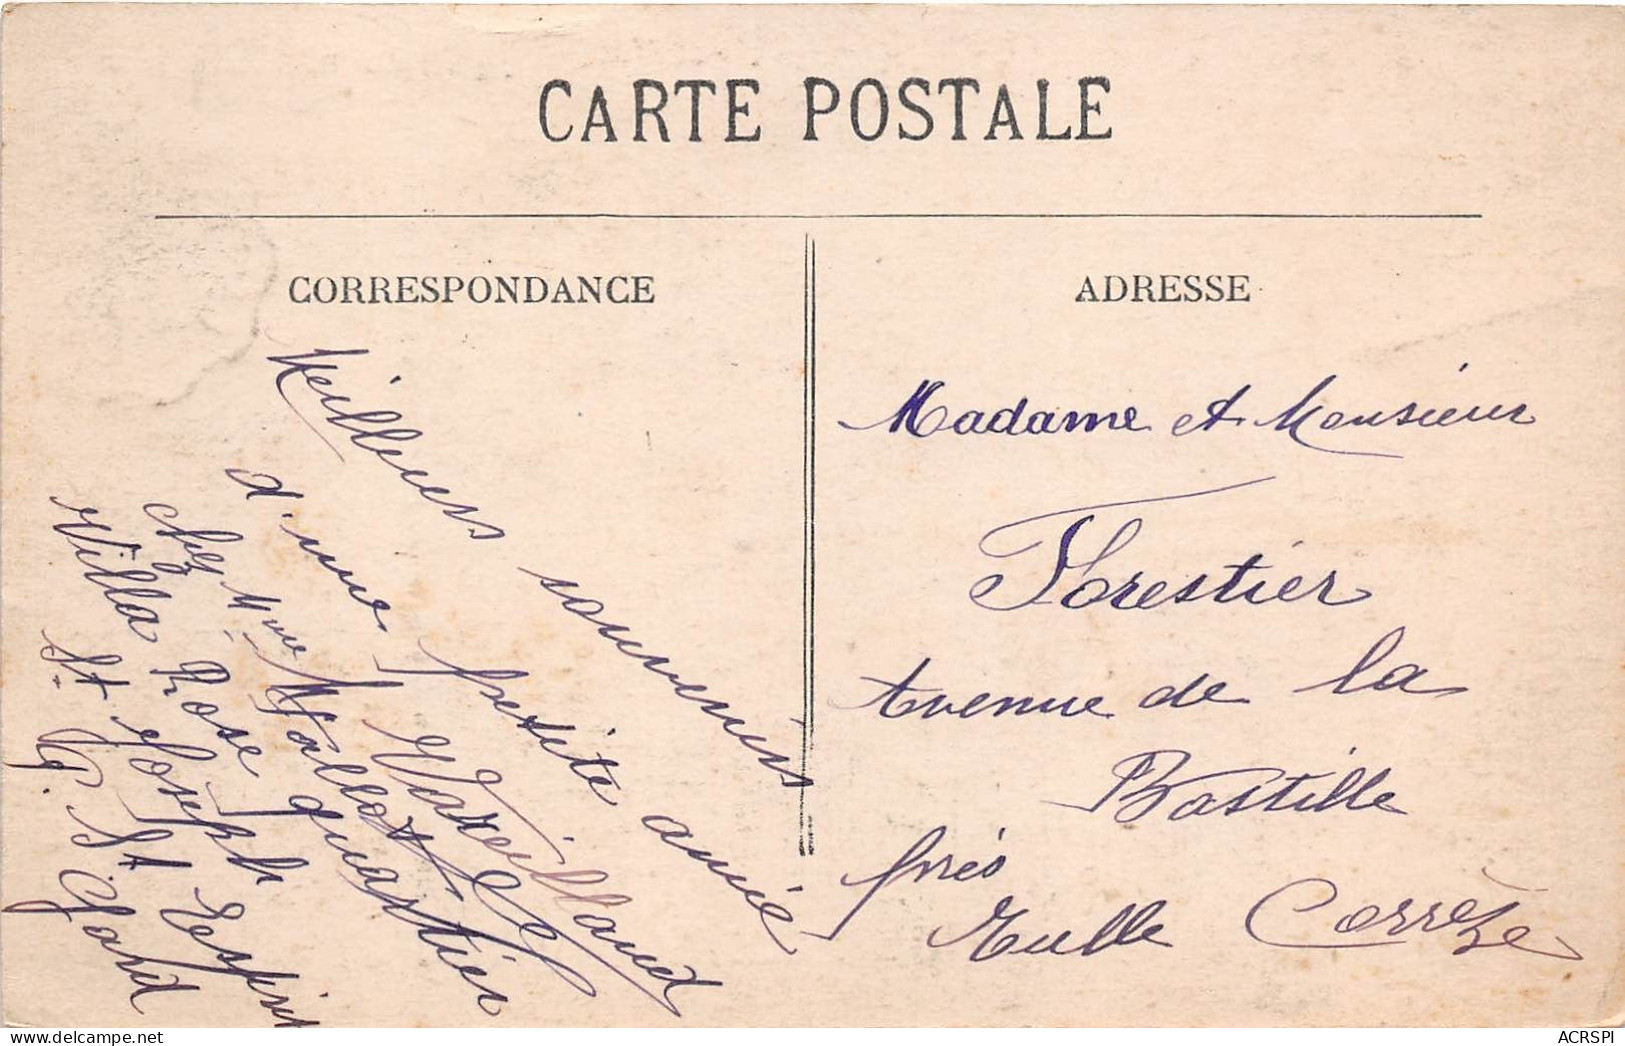 CARTE POSTALE
CORRESPONDANCE
Meilleurs souvenirs
d'une petite amie
Vareillaud
chez Mme
Villa Rose quartier
St. Joseph
Pt. St Esprit
Gard
ADRESSE
Madame et Monsieur
Forestier
Avenue de la
Bastille
près
Tulle Corrèze
ACRSPI